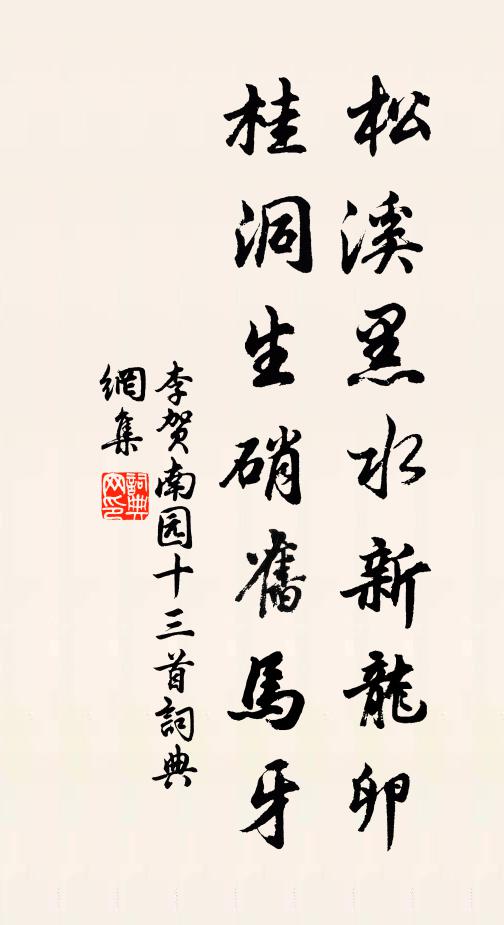 松溪黑水新龍卵
桂洞生硝舊馬牙
李贺南园十三首詞典
網集
詞典
网印